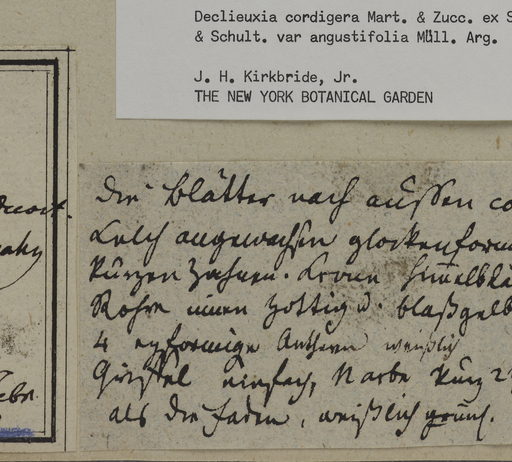 Declieuxia cordigera Mart. & Zucc. ex S
& Schult. var angustifolia Müll. Arg.
J. H. Kirkbride, Jr.
THE NEW YORK BOTANICAL GARDEN
die Blätter nach außen co
Kelch angewachsen glockenform
kurzen Zähnen. Krone himmelblä
Röhre innen zottig u. blaßgelb
4 eyförmige Antheren weißlich
Griffel einfach, Narbe kurz 2
als die Faden, weißlich grün.